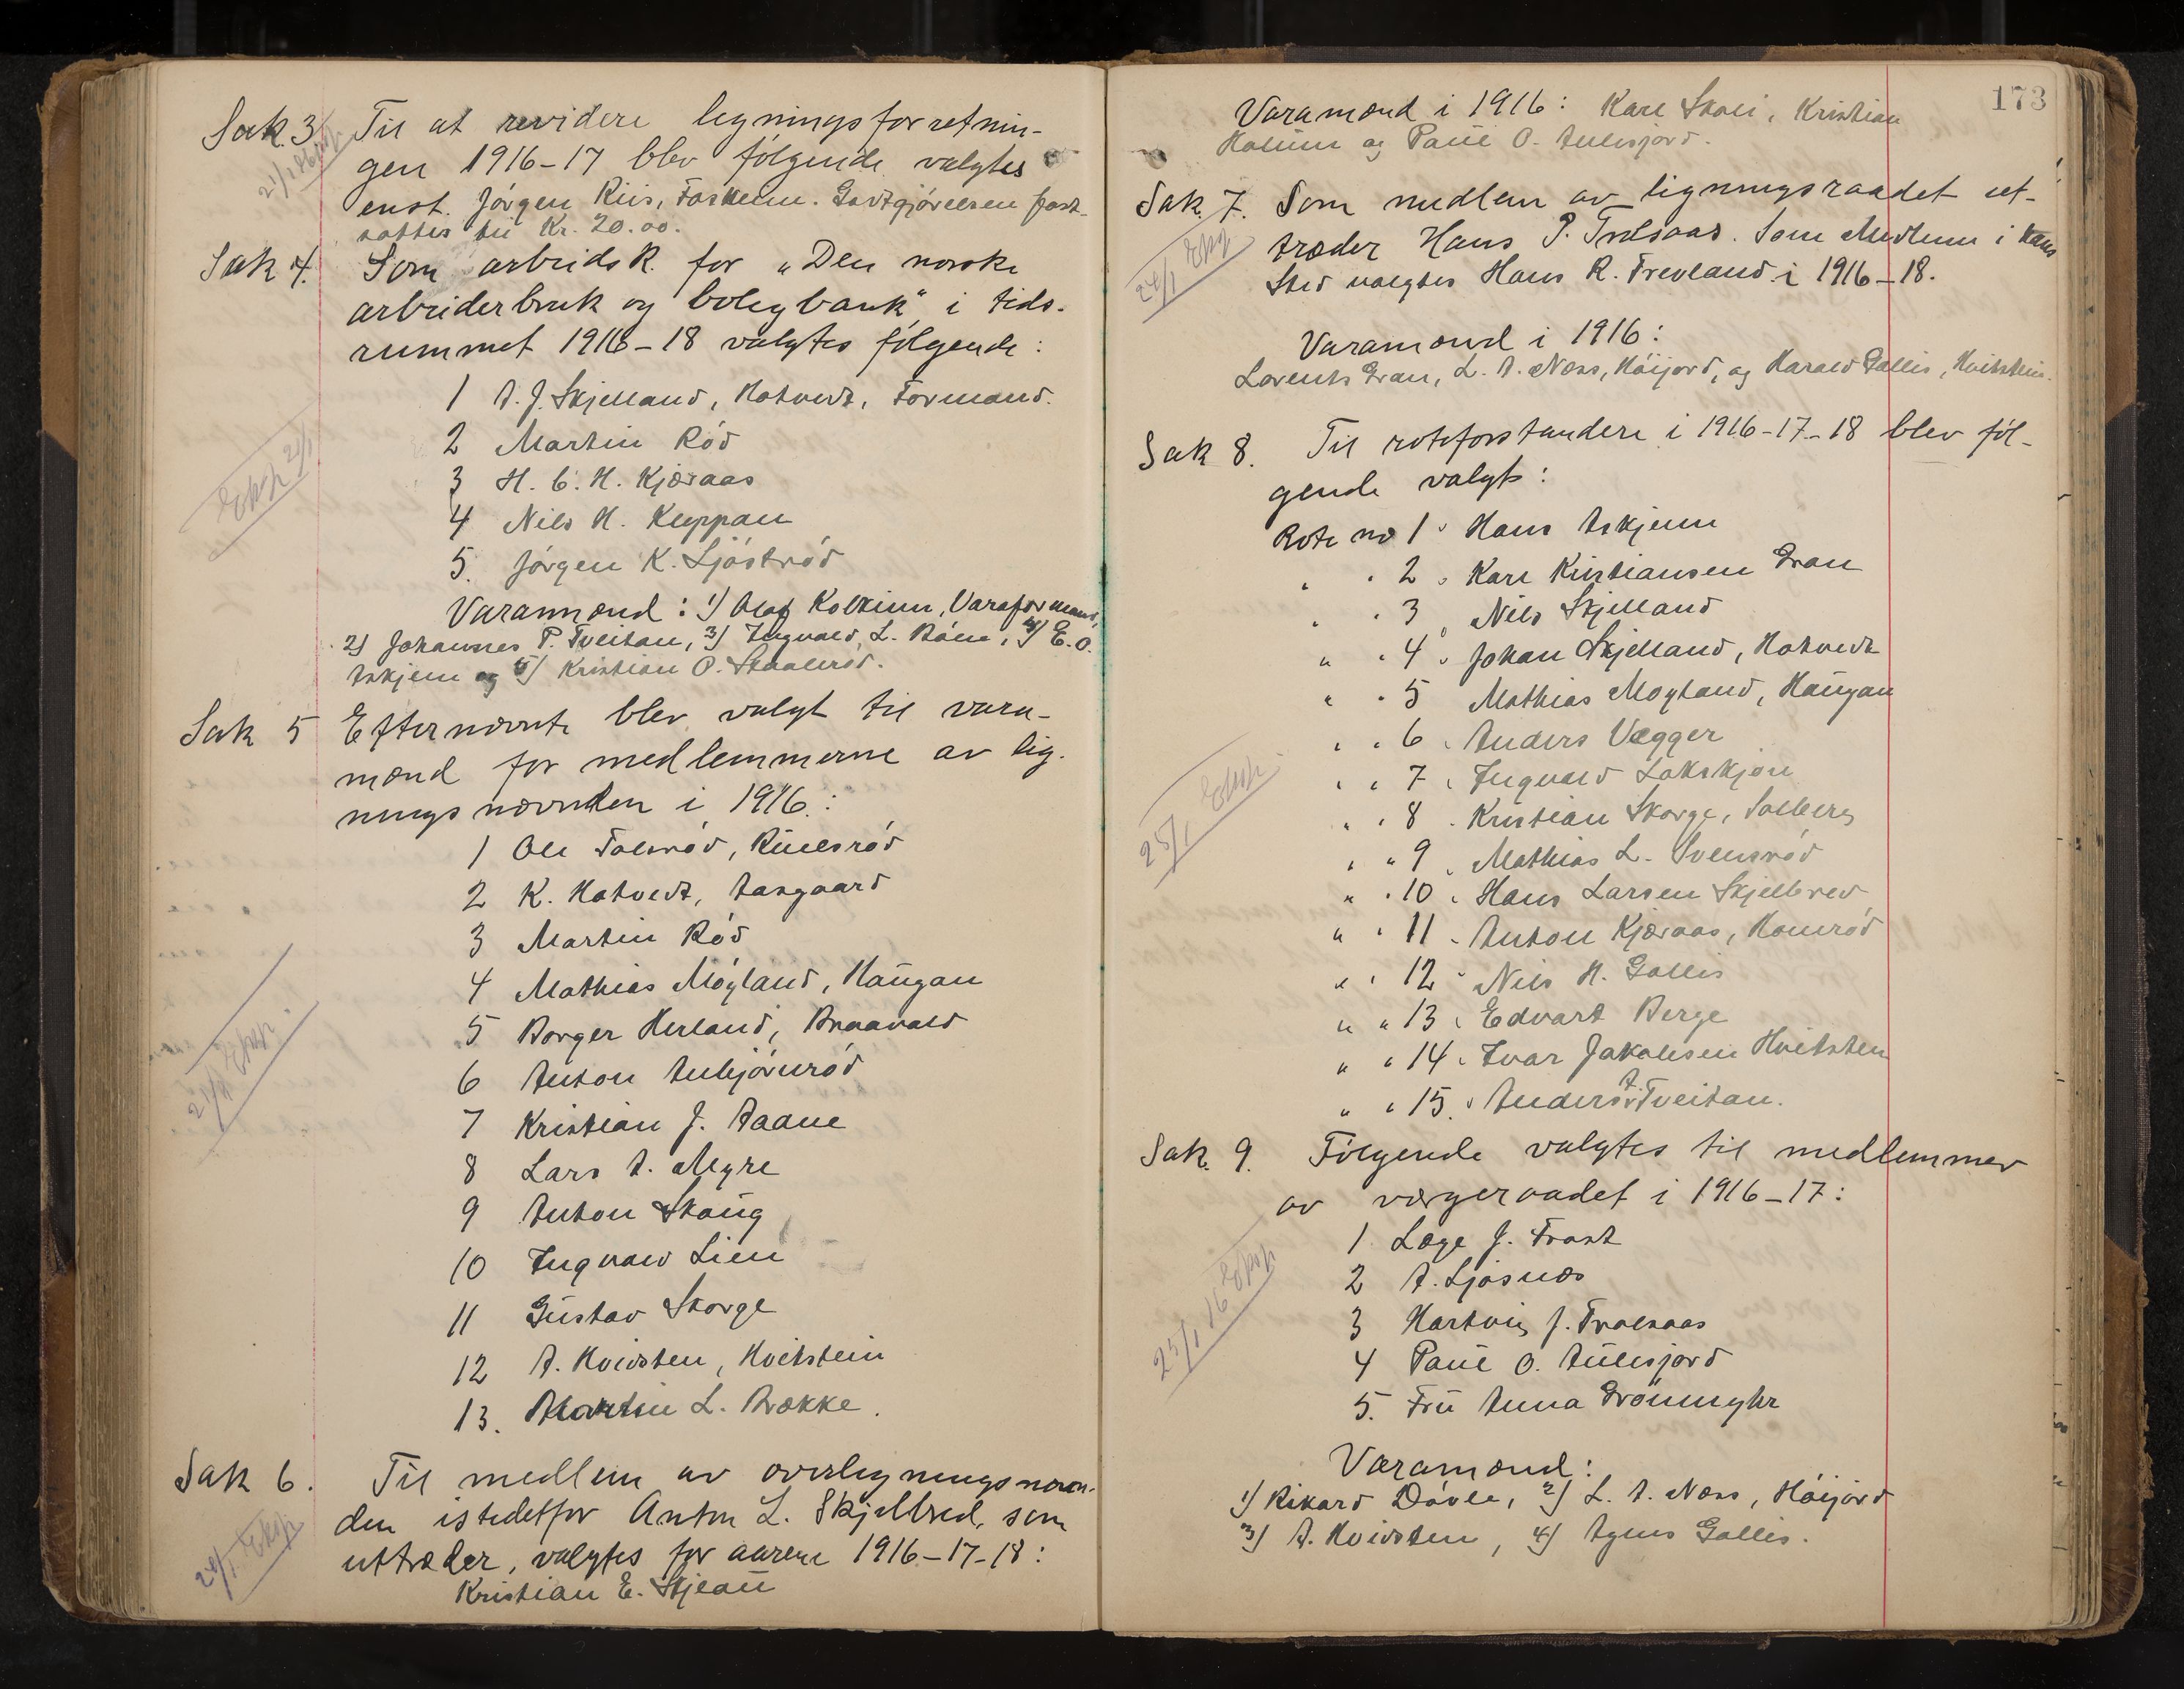 Sak. 3 Til at revidere ligningsforretnin-
gen 1916-17 blev følgende valgtes
enst. Jörgen Riis, Foskum. Godtgjörelsen fast-
sattes til Kr. 20.00.
Sak 4. Som arbeidsk. for „Den norske
arbeiderbruk og boligbank" i tids-
rummet 1916-18 valgtes følgende:
1 A. J. Skjelland, Hotvedt, Formand.
2 Martin Röd
3 H. C. H. Kjæraas
4 Nils H. Keppan
5. Jörgen K. Ljöströd
Varamænd: 1) Olaf Kolkinn, Varaformand,
2) Johannes P. Tveitan, 3) Ingvald L. Böen, 4) E. O.
Askjem og 5) Kristian O. Skaaleröd.
Eksp 21/1
Sak 5 Efternævnte blev valgt til vara-
mænd for medlemmerne av lig-
ningsnævnden i 1916:
1 Ole Folleröd, Rueleröd
2 K. Hotvedt, Aasgaard
3 Martin Röd
4 Mathias Möyland, Haugan
5 Borger Herland, Braavald
6 Anton Anbjörnröd
7 Kristian J. Aaane
8 Lars A. Myre
9 Anton Skaug
10 Ingvald Lien
11 Gustav Skorge
12 A. Hvidsten, Hvitstein
13. Martin L. Brække.
Sak 6. Til medlem av overligningsnævn-
den istedetfor Anton L. Skjelbred, som
uttræder, valgtes for aarene 1916-17-18:
Kristian E. Skjeau
24/1 Eksp
173
Varamænd i 1916: Karl Skoli, Kristian
Holum og Paul O. Aulesjord.
Sak. 7. Som medlem av ligningsraadet ut-
træder Hans P. Trolsaas. Som Medlem i hans
Sted valgtes Hans R. Trevland i 1916-18.
24/1 Eksp
Varamænd i 1916:
Lorents Gran, L. A. Næss, Höijord, og Harald Gallis, Hvitstein.
Sak 8. Til roteforstandere i 1916-17-18 blev föl-
gende valgt:
Rote no 1 " Hans Askjem
" " 2 " Karl Kristiansen Gran
" " 3 " Nils Skjelland
" " 4 " Johan Skjelland, Hotvedt
" " 5 Mathias Moyland, Haugan
" " 6 " Anders Vægger
" " 7 " Ingvald Lakskjön
" " 8 " Kristian Skorge, Solberg
" " 9 " Mathias L. Svensröd
" " 10 " Hans Larsen Skjelbred
" " 11 " Anton Kjæraas, Homröd
" " 12 " Nils H. Gallis
" " 13 " Edvart Berge
" " 14 " Ivar Jakobsen Hvitsten
" " 15. " Anders A. Tveitan.
25/1 Eksp.
Sak. 9. Følgende valgtes til medlemmer
av vergeraadet i 1916-17:
1. Læge J. Frost
2 A. Ljosnæs
3 Hartvig J. Trolsaas
4 Paul O. Aulesjord
5. Fru Anna Grönmyhr
25/1 16 Eksp.
Varamænd:
1) Rikard Dövle, 2) L. A. Næss, Höijord
3) A. Hvidsten, 4) Agnes Gallis.